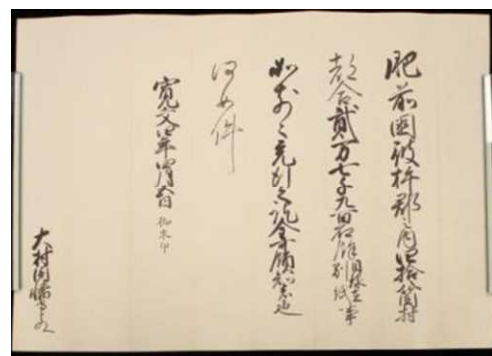 肥前國彼杵郡之内四拾箇村
都合貳万七千九百石餘目録在別紙事
如前々充行之訖全可領知者也
仍如件
寛文四年四月五日 御朱印
大村因幡守との